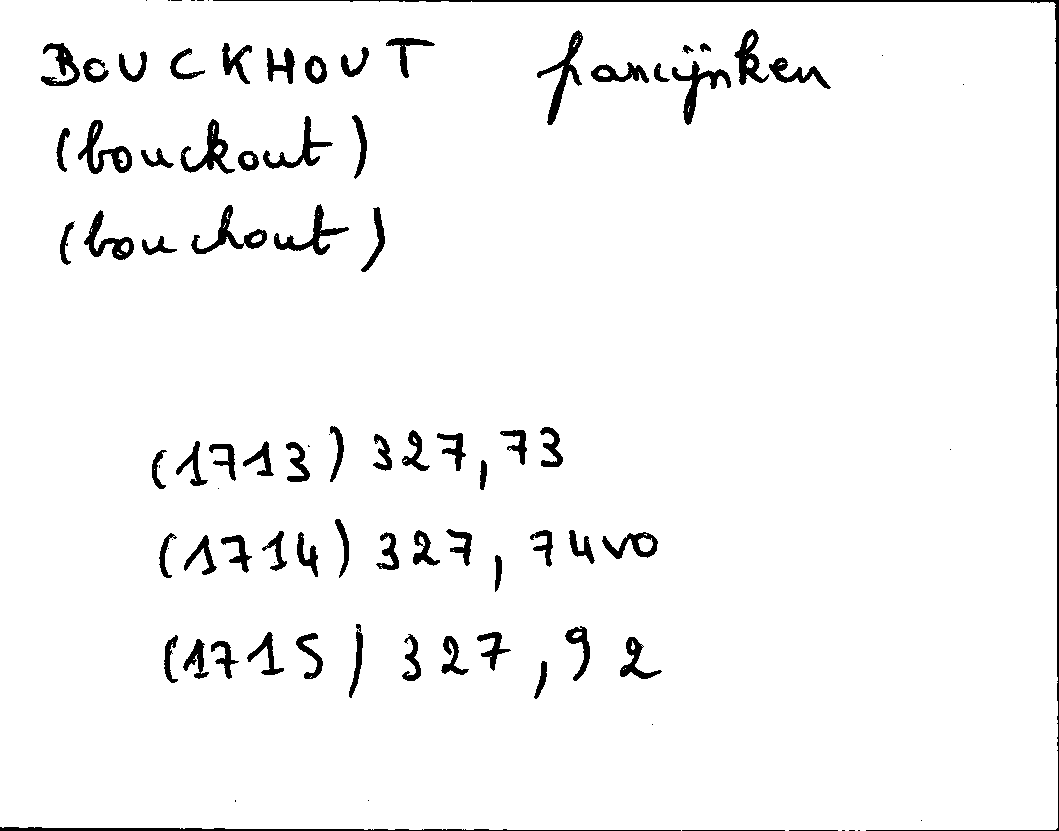 BOUCKHOUT francijnken
(bouckout)
(bouchout)
(1713) 327, 73
(1714) 327, 74vo
(1715) 327, 92